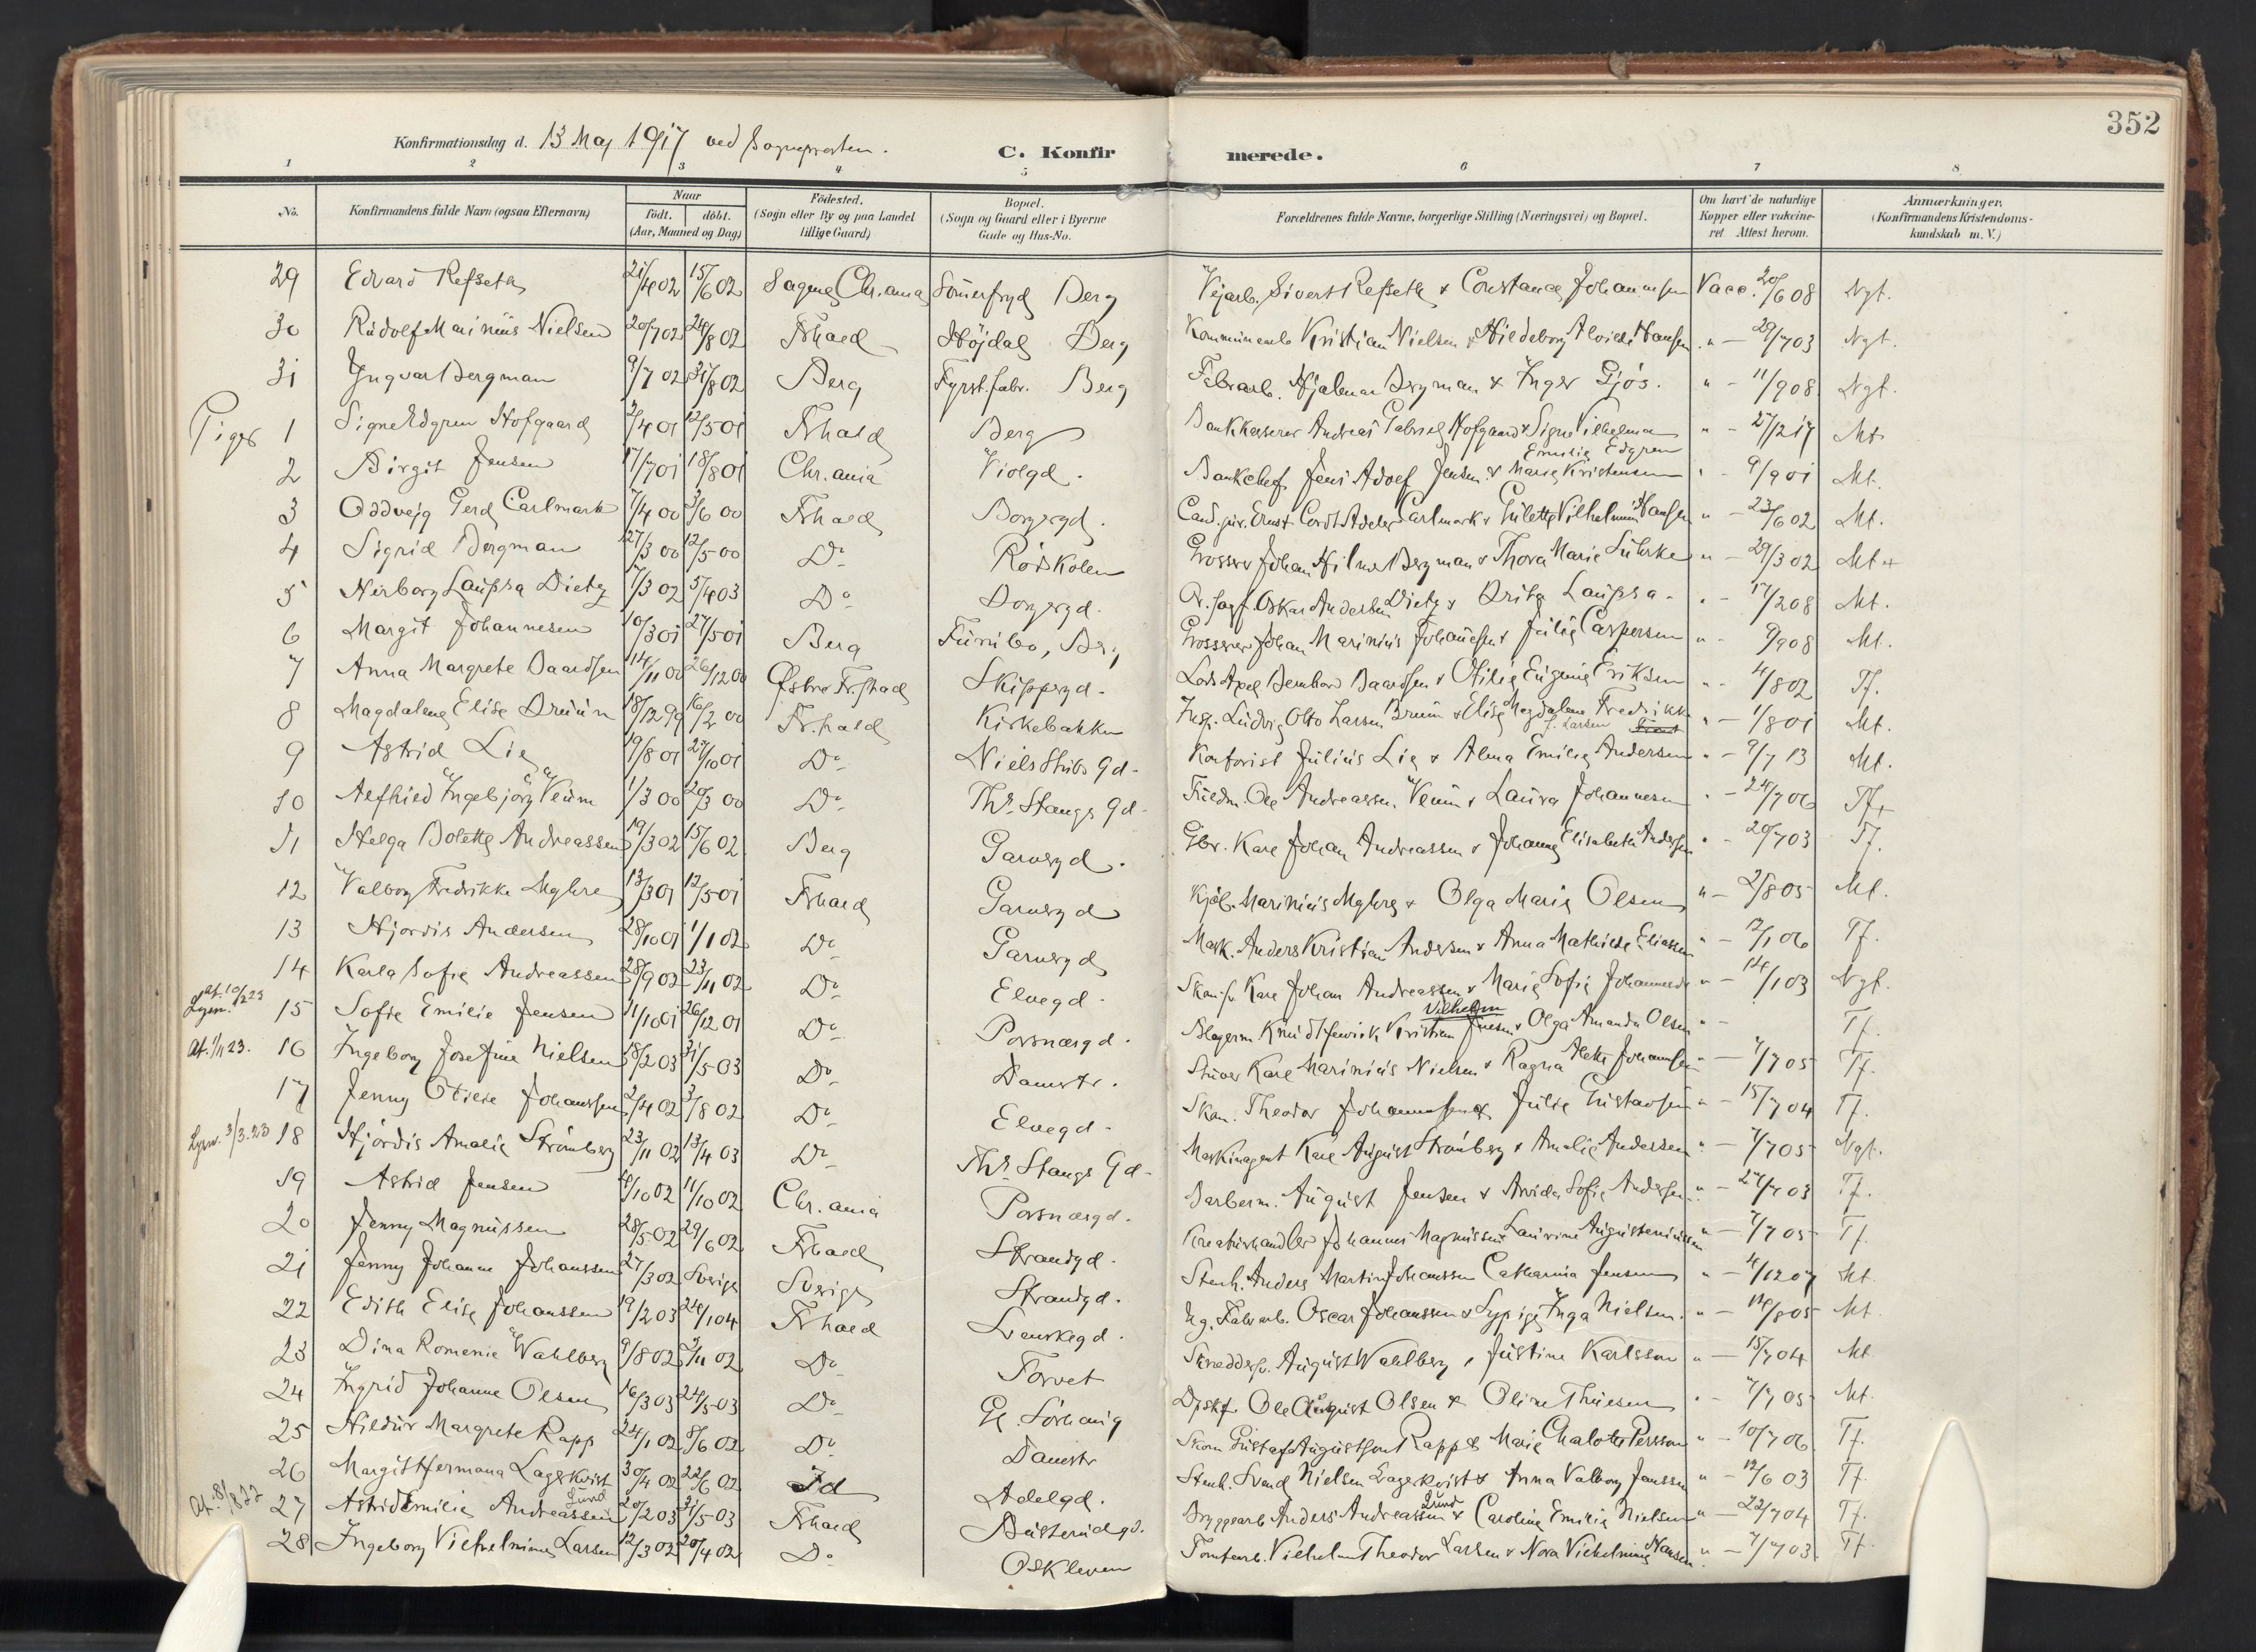 352
Konfirmationsdag d. 13 Maj 1917 ved Sognepresten.
C. Konfirmerede.
1 2 3 4 5 6 7 8
No. Konfirmandens fulde Navn (ogsaa Efternavn) Naar födt. döbt. (Aar, Maaned og Dag) Födested. (Sogn eller By og paa Landet tillige Gaard) Bopæl. (Sogn og Gaard eller i Byerne Gade og Hus-No. Forældrenes fulde Navne, borgerlige Stilling (Næringsvei) og Bopæl. Om havt de naturlige Kopper eller vakcineret Attest herom. Anmærkninger. (Konfirmandens Kristendomskundskab m. V.)
29 Edvard Refseth 21/4 02 15/6 02 Sagene Chr.ania Berg Vejarb. Sivert Refseth & Constance Johannesen Vacc. 20/6 08 Ngt.
30 Rudolf Marinius Nielsen 20/7 02 24/8 02 Frhald Höjdal Berg Kristian Nielsen & Hildeborg Alvilde Hansen " - 29/7 03 Ngt.
31 Yngvar Bergman 9/7 02 31/8 02 Berg Fyrst.fabr. Berg Fabrarb. Hjalmar Bergman & Inger Gjös. " - 11/9 08 Ngt.
Piger 1 Signe Edgren Hofgaard 2/4 01 12/5 01 Frhald Berg Bankkasserer Andreas Gabriel Hofgaard & Signe Vilhelmine Emilie Edgren " - 27/2 17 Mt.
2 Birgit Jensen 17/7 01 18/8 01 Chr.ania Violgd. Bankchef Jens Adolf Jensen & Marie Kristensen " 9/9 01 Mt.
3 Oddvejg Gerd Carlmark 7/4 00 3/6 00 Frhald Borgergd. Cand. jur. Ernst Cordt Adeler Carlmark & Vilhelmine Hansen " - 23/6 02 Mt.
4 Sigrid Bergman 27/3 00 12/5 00 Do Rödskolen Grosserer Johan Hilmer Bergman & Thora Marie Lührke " - 29/3 02 Mt +
5 Laupsa Dietz 7/3 02 5/4 03 Do Borgergd. Oskar Andersen Dietz & Brita Laupsa. " - 17/2 08 Mt.
6 Margit Johannesen 10/3 01 27/5 01 Berg Furubo, Berg Grosserer Johan Marinius Johannesen & Julie Caspersen " - 9/9 08 Mt.
7 Anna Margrete Baardsen 14/11 00 26/12 00 Östre Fr.hald Skippergd. Lods Axel Bernhard Baardsen & Otilie Eugenie Eriksen " - 4/8 02 Tf.
8 Magdalene Elise Bruun 18/12 99 16/2 00 Fr.hald Kirkebakken Insp. Ludvig Otto Larsen Bruun & Elise Magdalene Fredrikke f. Larsen " - 1/8 01 Mt.
9 Astrid Lie 19/8 01 27/10 01 Do Niels Stubs Gd. Kontorist Julius Lie & Alma Emilie Andersen " - 9/7 13 Mt.
10 Alfhild Ingebjörg Veum 1/3 00 20/3 00 Do Thr. Stangs Gd. Ole Andreassen Veum & Laura Johannesen " - 24/7 06 Tf +
11 Helga Bolette Andreassen 19/3 02 15/6 02 Berg Garvergd. Gbr. Karl Johan Andreassen & Johanne Elisabeth Andersen " - 20/7 03 Tf.
12 Valborg Fredrikke Myhre 13/3 01 12/5 01 Frhald Garvergd Kjöb. Marinius Myhre & Olga Marie Olsen " - 2/8 05 Mt.
13 Hjordis Andersen 28/10 01 1/1 02 Do Garvergd Mask. Anders Kristian Andersen & Anna Mathilde Eliassen " - 12/1 06 Tf.
14 Karla Sofie Andreassen 28/9 02 23/11 02 Do Elvegd. Karl Johan Andreassen & Marie Sofie Johannesdr. " - 14/1 03 Ngt.
at. 10/2 23 Lysn. 15 Sofie Emilie Jensen 11/10 01 26/12 01 Do Porsnæsgd. Knud Henrik Kristian Vilhelm Jensen & Olga Amanda Olsen " - Tf.
at. 1/11 23. 16 Ingeborg Josefine Nielsen 18/2 03 31/5 03 Do Damstr. Stuer Karl Marinius Nielsen & Ragna Alette Johannesen " - 7/7 05 Tf.
17 Jenny Otilie Johanssen 2/4 02 3/8 02 Do Elvegd. Skom. Theodor Johannesen & Julie Gustavsen " - 15/7 04 Tf.
Lysn. 3/3.23 18 Hjördis Amalie Strömberg 23/11 02 13/4 03 Do Thr. Stangs Gd. Maskinagent Karl August Strömberg & Amalie Andersen " - 7/7 05 Ngt.
19 Astrid Jensen 11/10 02 Chr.ania Porsnæsgd. Barberm. August Jensen & Arvida Sofie Andersen " - 27/7 03 Tf.
20 Jenny Magnussen 28/5 02 29/6 02 Frhald Strandgd. Kreaturhandler Johannes Magnussen & Laurine " - 7/7 05 Tf.
21 Jenny Johanne Johanssen 27/3 02 Sverige Sverige Strandgd. Stenh. Anders Martin Johanssen Catharina Jensen " - 4/12 07 Mt.
22 Edith Elise Johanssen 19/2 03 24/1 04 Frhald Svenskegd. Ug. Fabrarb. Oscar Johanssen & Sypige Inga Nielsen. " - 14/8 05 Mt.
23 Dina Romenie Wahlberg 9/8 02 2/11 02 Do Torvet Skreddersv. August Wahlberg & Justine Karlsson " - 15/7 04 Mt.
24 Ingrid Johanne Olsen 16/3 03 24/5 03 Do Gl. Sörhaug Ole August Olsen & Oline Thuesen " - 7/7 05 Mt.
25 Hildur Margrete Rapp 24/1 02 8/6 02 Do Damstr Skom Gustaf Augustson Rapp & Marie Chalotte Persson " - 10/7 06 Tf.
26 Margit Hermana Lagerkvist 30/4 02 22/6 02 Id Adelgd. Stenh. Svend Nielsen Lagerkvist & Anna Valborg Janssen " - 12/6 03 Tf
at. 8/8 22 27 Astrid Emilie Andreassen Lund 20/2 03 31/5 03 Frhald Busterudgd. Bryggearb Anders Andreassen Lund & Caroline Emilie Nielsen " - 22/7 04 Tf.
28 Ingeborg Vilhelmine Larsen 12/3 02 20/4 02 Do Oskleven Tomtearb. Vilhelm Theodor Larsen & Nora Vilhelmine Hansen " - 7/7 03. Tf.